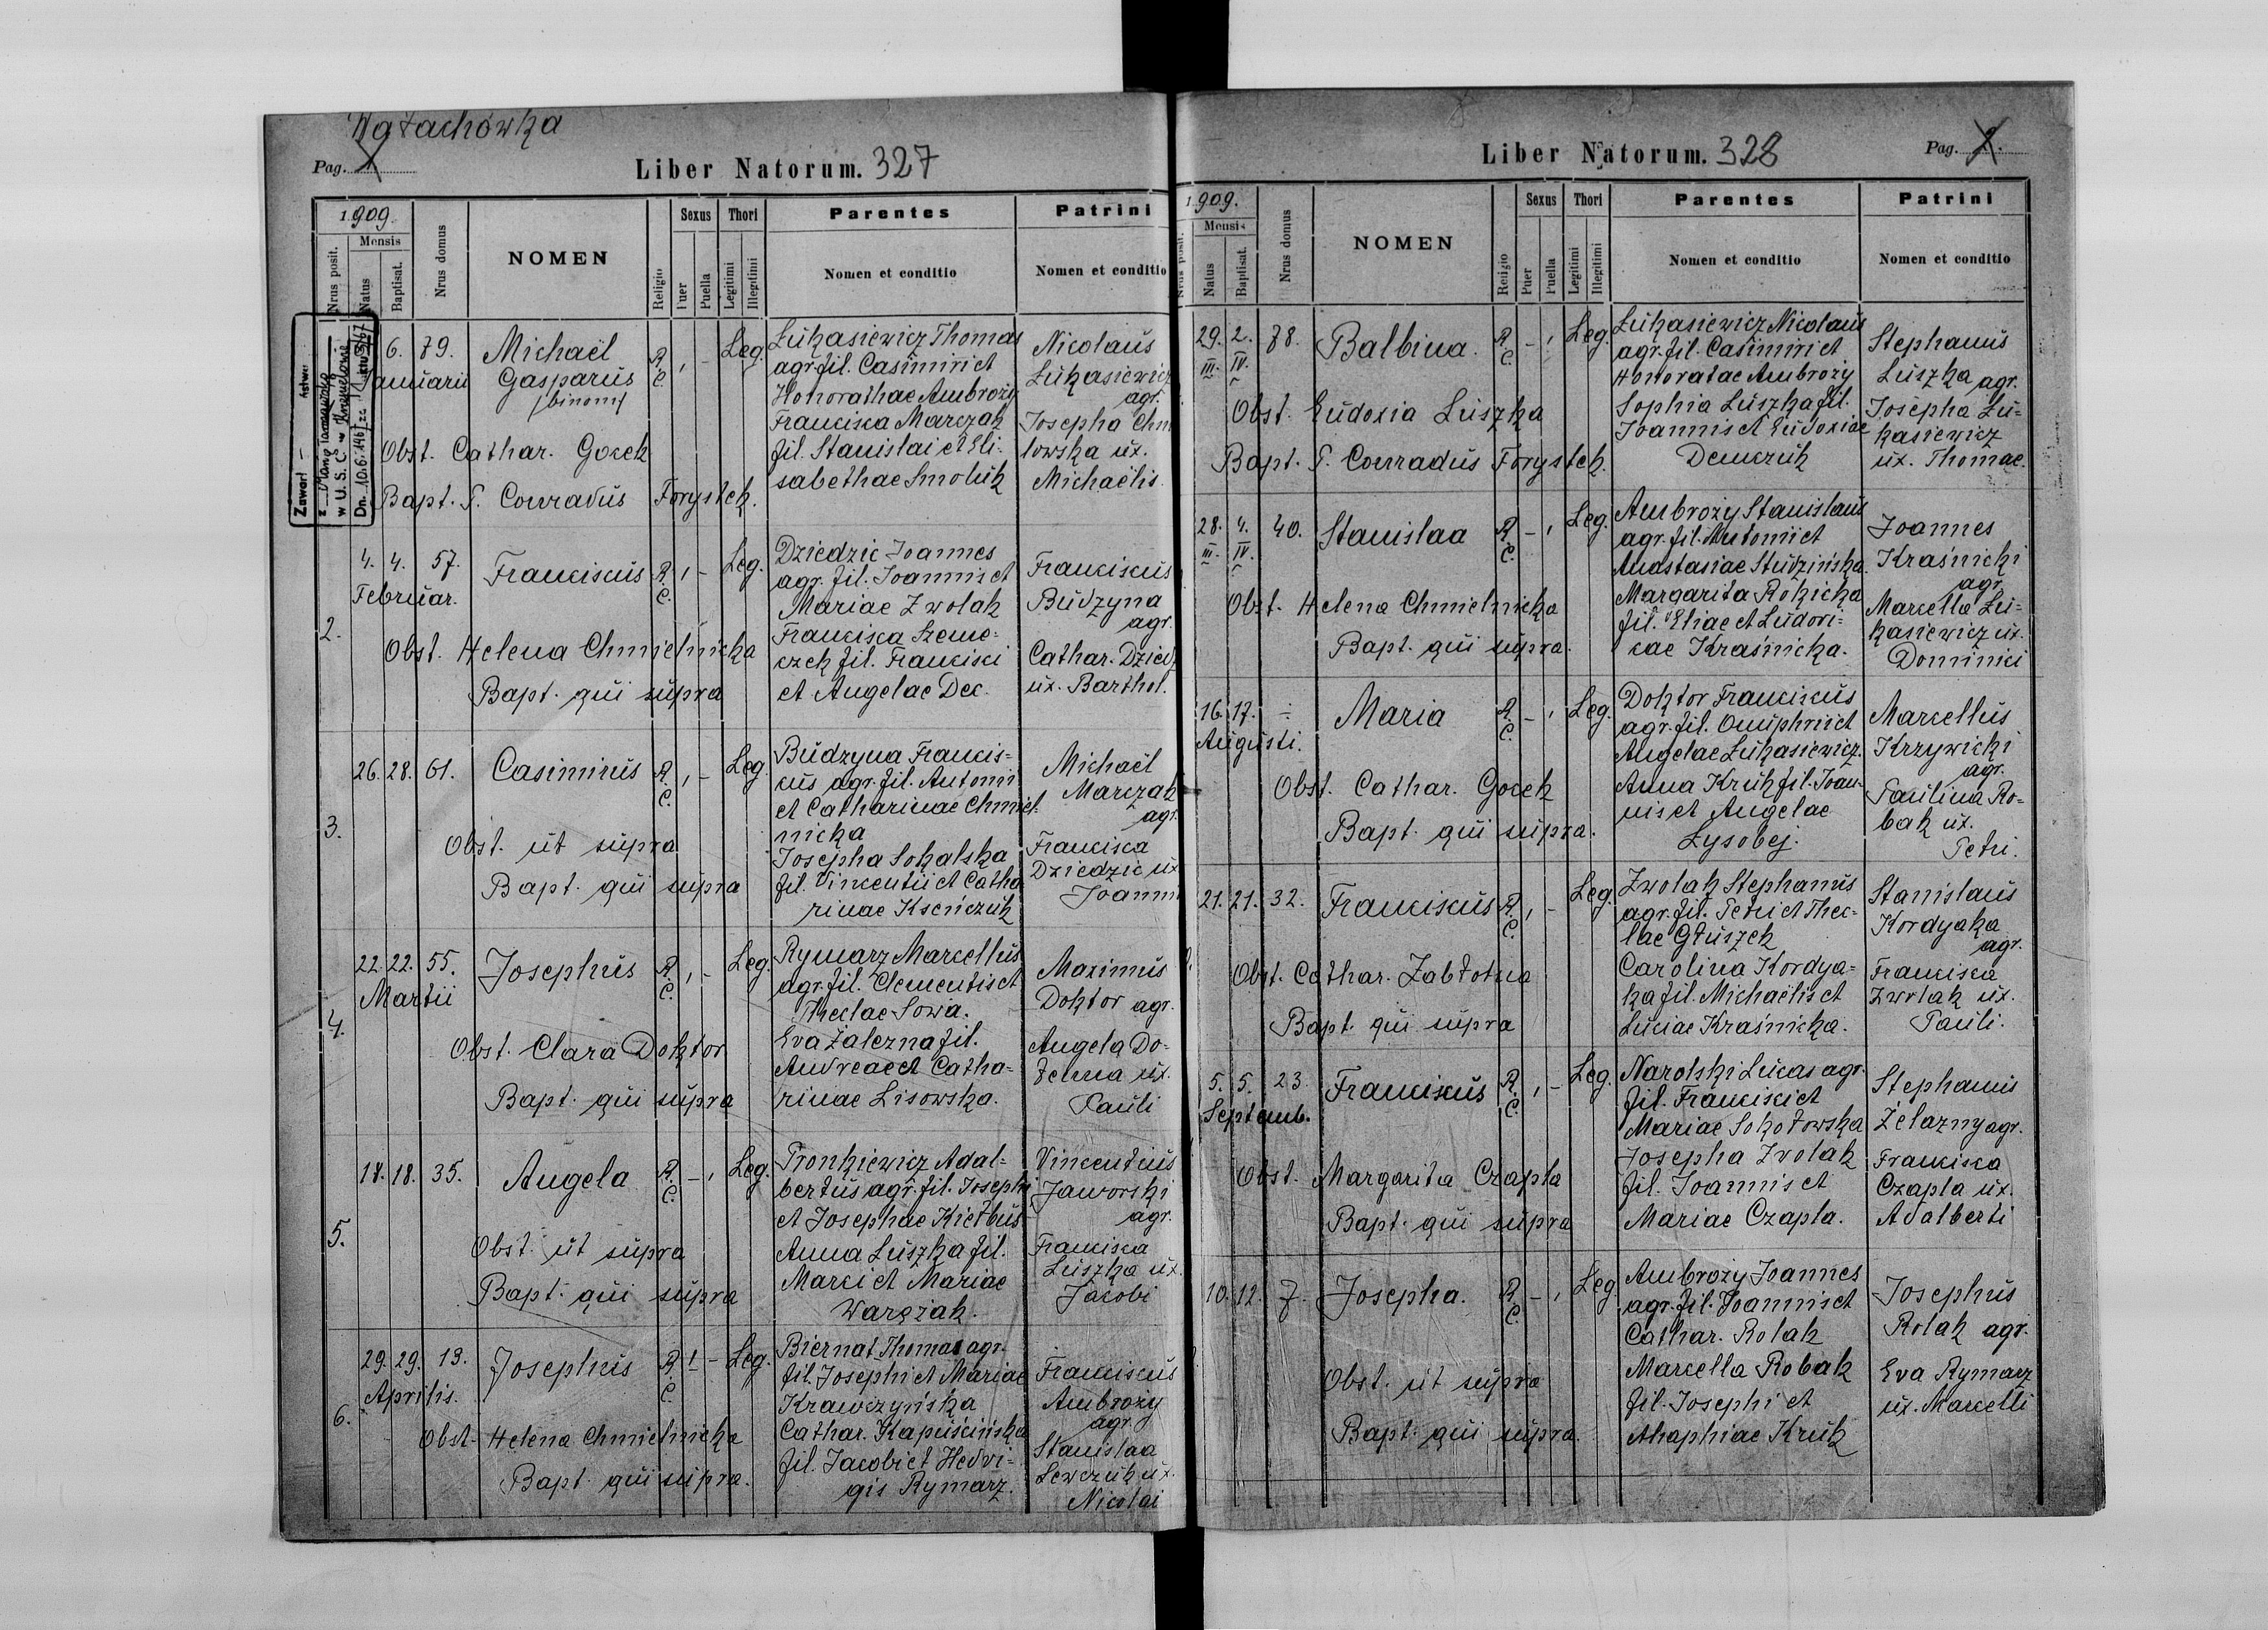 Wałachówka
Pag. 1
Liber Natorum. 327
1909.
Nrus posit.
Mensis
Natus
Baptisat.
Nrus domus
NOMEN
Religio
Sexus
Puer
Puella
Thori
Legitimi
Illegitimi
Parentes
Nomen et conditio
Patrini
Nomen et conditio
Zawarł
w U. S. C. w
6. 79. Michaël
Januarii Gasparus
binomi
R. C. , - Leg.
Obst. Cathar. Gocek
Bapt. P. Conradus Forystek.
Łukasiewicz Thomas
agr. fil. Casimiri et
Honorathae Ambroży
Francisca Marczak
fil. Stanislai et Eli-
sabethae Smoluk
Nicolaus
Łukasiewicz
agr.
Josepha Chm
lowska ux.
Michaëlis
2.
4. 4. 57. Franciscus R. C. , - Leg.
Februar.
Obst. Helena Chmielnicka
Bapt. qui supra
Dziedzic Joannes
agr. fil. Joannis et
Mariae Zwolak
Francisca Szeme-
czek fil. Francisci
et Angelae Dec.
Franciscus
Budzyna
agr.
Cathar. Dzied
ux. Barthol.
3.
26. 28. 61. Casimirus R. C. , - Leg.
Obst. ut supra
Bapt. qui supra
Budzyna Francis-
cus agr. fil. Antoni
et Catharinae Chmiel-
nicka
Josepha Sokalska
fil. Vincentii et Catha
rinae Kseńczuk
Michaël
Marczak
agr.
Francisca
Dziedzic ux
Joanni
4.
22. 22. 55. Josephus R. C. , - Leg.
Martii
Obst. Clara Doktor
Bapt. qui supra
Rymarz Marcellus
agr. fil. Clementis et
Theclae Sowa.
Eva Zalezna fil.
Andreae et Catha-
rinae Lisowska.
Maximus
Doktor agr.
Angela Do-
ux.
Pauli
5.
18. 18. 35. Angela R. C. - , Leg.
Obst. ut supra
Bapt. qui supra
Pronkiewicz Adal-
bertus agr. fil. Josephi
et Josephae Kiełbus
Anna Luszka fil.
Marci et Mariae
Warszak.
Vincentius
Jaworski
agr.
Francisca
Luszka ux.
Jacobi
6.
29. 29. 13. Josephus R. C. , - Leg.
Aprilis.
Obst. Helena Chmielnicka
Bapt. qui supra.
Biernat Thomas agr.
fil. Josephi et Mariae
Krawczyńska
Cathar. Kapuścińska
fil. Jacobi et Hedvi-
gis Rymarz.
Franciscus
Ambroży
agr.
Stanislaa
Lewczuk ux.
Nicolai
Liber Natorum. 328
Pag. 2.
1909.
Nrus posit.
Mensis
Natus
Baptisat.
Nrus domus
NOMEN
Religio
Sexus
Puer
Puella
Thori
Legitimi
Illegitimi
Parentes
Nomen et conditio
Patrini
Nomen et conditio
29. 2. 78. Balbina. R. C. - , Leg.
III. IV.
Obst. Eudoxia Luszka
Bapt. P. Conradus Forystek.
Łukasiewicz Nicolaus
agr. fil. Casimiri et
Honoratae Ambroży
Sophia Luszka fil.
Joannis et Eudoxiae
Demczuk
Stephanus
Luszka agr.
Josepha Łu-
kasiewicz
ux. Thomae.
28. 4. 40. Stanislaa R. C. - , Leg.
III. IV.
Obst. Helena Chmielnicka
Bapt. qui supra.
Ambroży Stanislaus
agr. fil. Antonii et
Anastasiae Studzińska
Margarita Rokicka
fil. Eliae et Ludovi-
cae Kraśnicka.
Joannes
Kraśnicki
agr.
Marcella Łu-
kasiewicz ux.
Dominici
16. 17. ÷ Maria R. C. - , Leg.
Augusti.
Obst. Cathar. Gocek
Bapt. qui supra.
Doktor Franciscus
agr. fil. Onuphrii et
Angelae Łukasiewicz.
Anna Kruk fil. Joan-
nis et Angelae
Łysobej.
Marcellus
Krzywicki
agr.
Paulina Ro-
bak ux.
Petri.
21. 21. 32. Franciscus R. C. , - Leg.
Obst. Cathar. Zabłotna
Bapt. qui supra
Zwolak Stephanus
agr. fil. Petri et Thec-
lae Głuszek
Carolina Kordya-
ka fil. Michaëlis et
Luciae Kraśnicka.
Stanislaus
Kordyaka
agr.
Francisca
Zwolak ux.
Pauli.
5. 5. 23. Franciscus R. C. , - Leg.
Septemb.
Obst. Margarita Czapla
Bapt. qui supra
Narolski Lucas agr.
fil. Francisci et
Mariae Sokołowska
Josepha Zwolak
fil. Joannis et
Mariae Czapla.
Stephanus
Żelazny agr.
Francisca
Czapla ux.
Adalberti
10. 12. 7. Josepha. R. C. - , Leg.
Obst. ut supra
Bapt. qui supra.
Ambroży Joannes
agr. fil. Joannis et
Cathar. Rolak
Marcella Robak
fil. Josephi et
Ahaphiae Kruk
Josephus
Rolak agr.
Eva Rymarz
ux. Marcelli